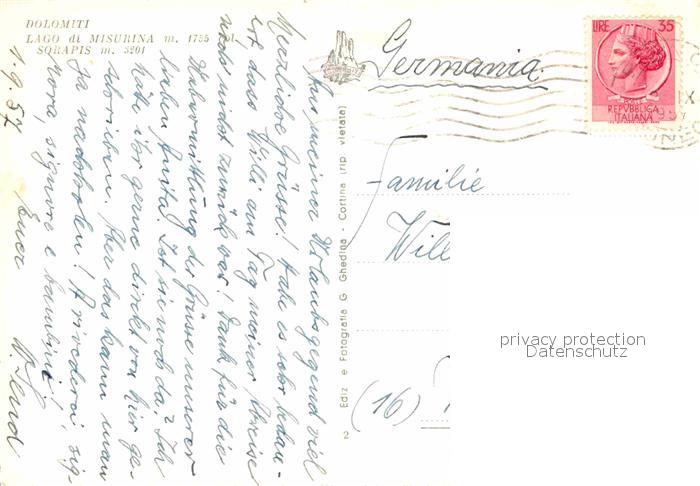 DOLOMITI
LAGO di MISURINA m. 1755
SORAPIS m. 3201
1.9.57
Aus meiner Urlaubsgegend viel
Herzliche Grüsse! Habe es sehr bedau-
ert, dass Willi am Tag meiner Abreise
noch nicht zurück war! Dank für die
Übermittlung der Grüsse unserer
lieben Anita. Ist sie noch da? Ich
hätte ihr gerne direkt von hier ge-
schrieben. Aber das kann man
ja nachholen! Arivederci, sig-
nora, signore e bambini!
Euer
Ediz e Fotografia G Ghedina - Cortina (rip vietata)
2
Germania
LIRE 35
REPVBBLICA
ITALIANA
Familie
Will
(16)
privacy protection
Datenschutz